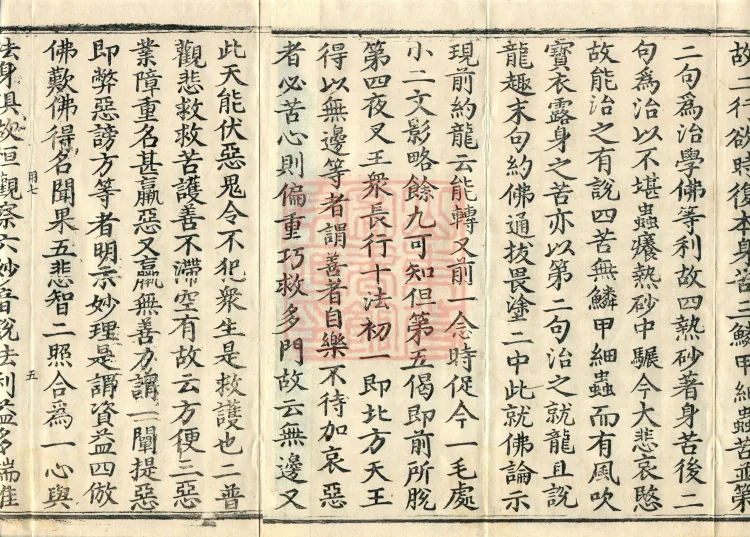 故二行欲時復本身苦三鱗甲細蟲苦並第
二句為治學佛等利故四熱砂著身苦後二
句為治以不堪蟲癢熱砂中驅今大悲哀愍
故能治之有說四苦無鱗甲細蟲而有風吹
寶衣露身之苦亦以第二句治之就龍且說
龍趣末句約佛通拔畏塗二中此就佛論示
現前約龍云能轉又前一念時促今一毛處
小二文影略餘九可知但第五偈即前所脫
第四夜叉王衆長行十法初一即北方天王
得以無邊等者謂善者自樂不待加哀惡
者必苦心則偏重巧救多門故云無邊又
此天能伏惡鬼令不犯衆生是救護也二普
觀悲救救苦護善不滯空有故云方便三惡
業障重名甚羸惡又羸無善力謂一闡提惡
即弊惡謗方等者明示妙理是謂資益四倣
佛歎佛得名聞果五悲智二照合為一心與
用七
五
法身俱故恒觀察六妙音說法利益多端唯